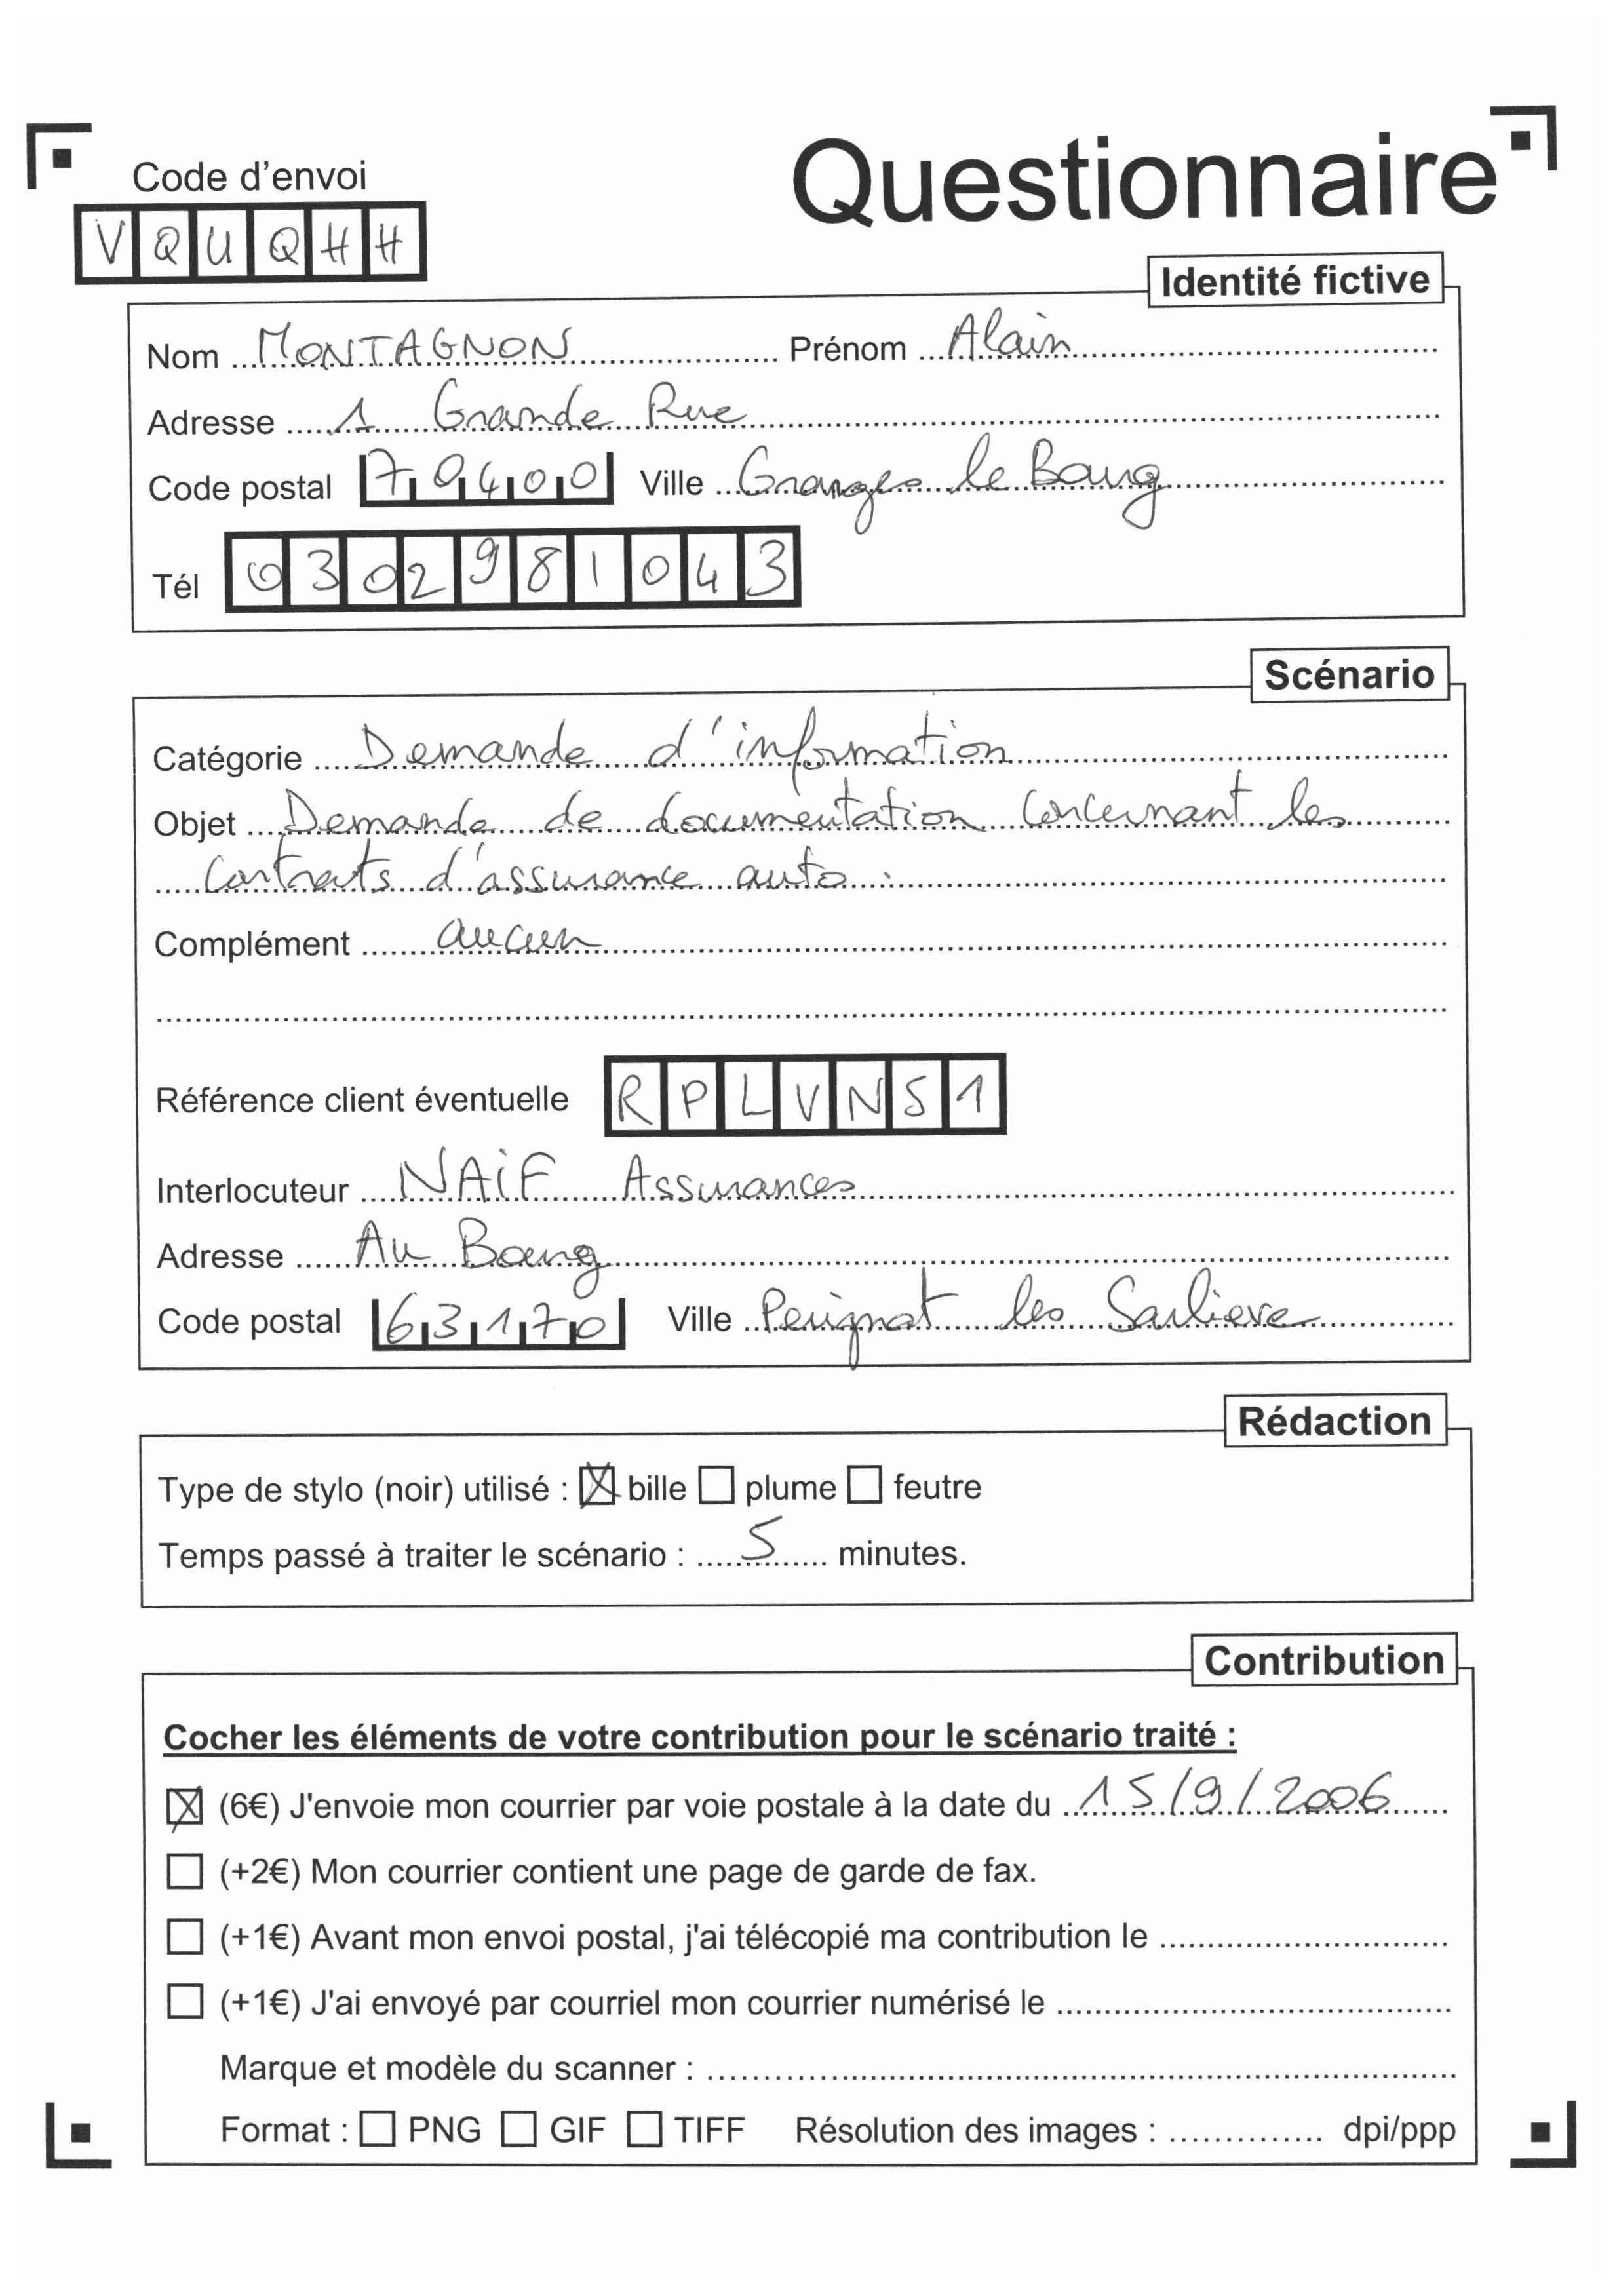 Questionnaire
Code d'envoi
VQUQHH
Identité fictive
Nom MONTAGNON Prénom Alain
Adresse 1 Grande Rue
Code postal 70400 Ville Granges le Bourg
Tél 0302981043
Scénario
Catégorie Demande d'information
Objet Demande de documentation concernant les
contrats d'assurance auto.
Complément aucun
Référence client éventuelle RPLVNS1
Interlocuteur NAiF Assurances
Adresse Au Bourg
Code postal 63170 Ville Perignat les Sarlieve
Rédaction
Type de stylo (noir) utilisé : ☒ bille ☐ plume ☐ feutre
Temps passé à traiter le scénario : 5 minutes.
Contribution
Cocher les éléments de votre contribution pour le scénario traité :
☒ (6€) J'envoie mon courrier par voie postale à la date du 15/9/2006
☐ (+2€) Mon courrier contient une page de garde de fax.
☐ (+1€) Avant mon envoi postal, j'ai télécopié ma contribution le
☐ (+1€) J'ai envoyé par courriel mon courrier numérisé le
Marque et modèle du scanner :
Format : ☐ PNG ☐ GIF ☐ TIFF Résolution des images : dpi/ppp